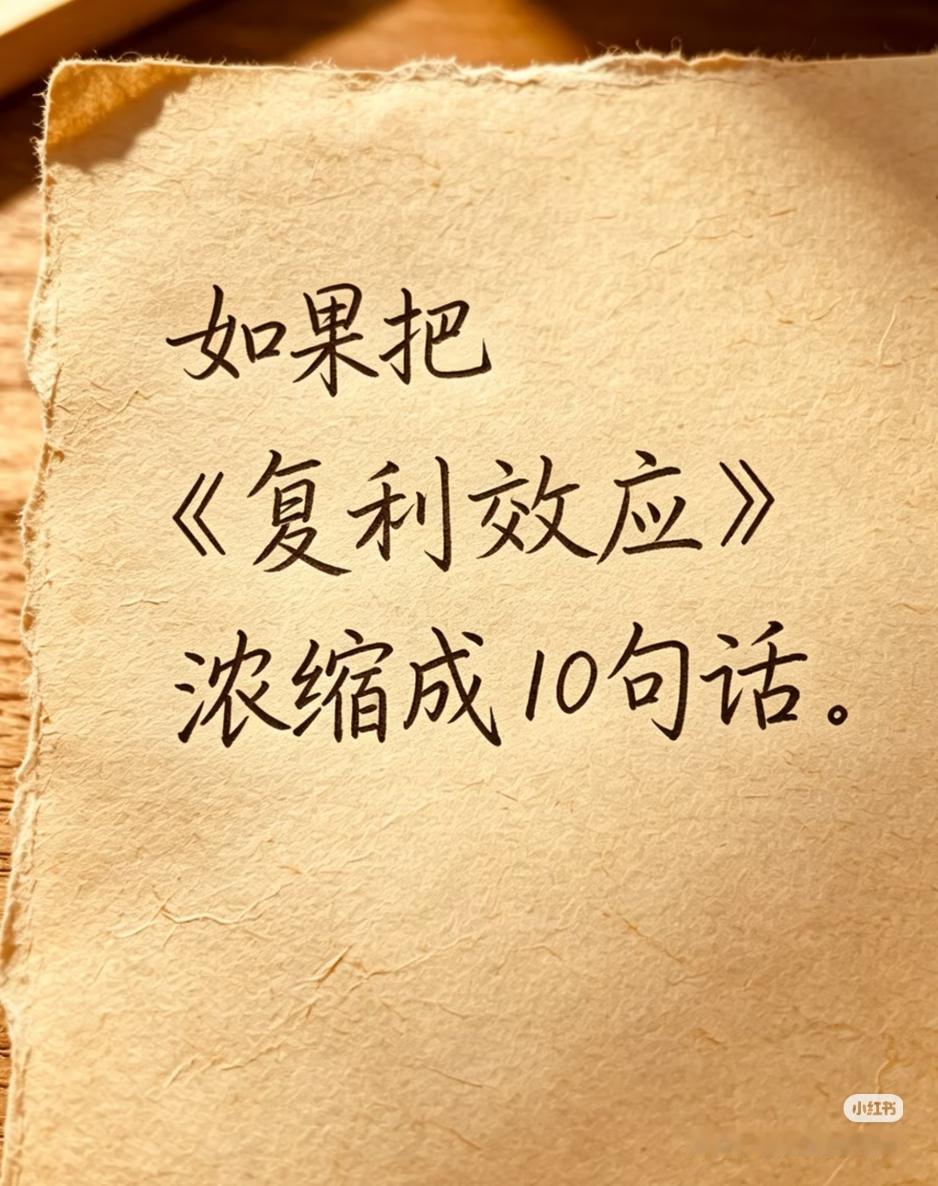 如果把
《复利效应》
浓缩成10句话。
小红书